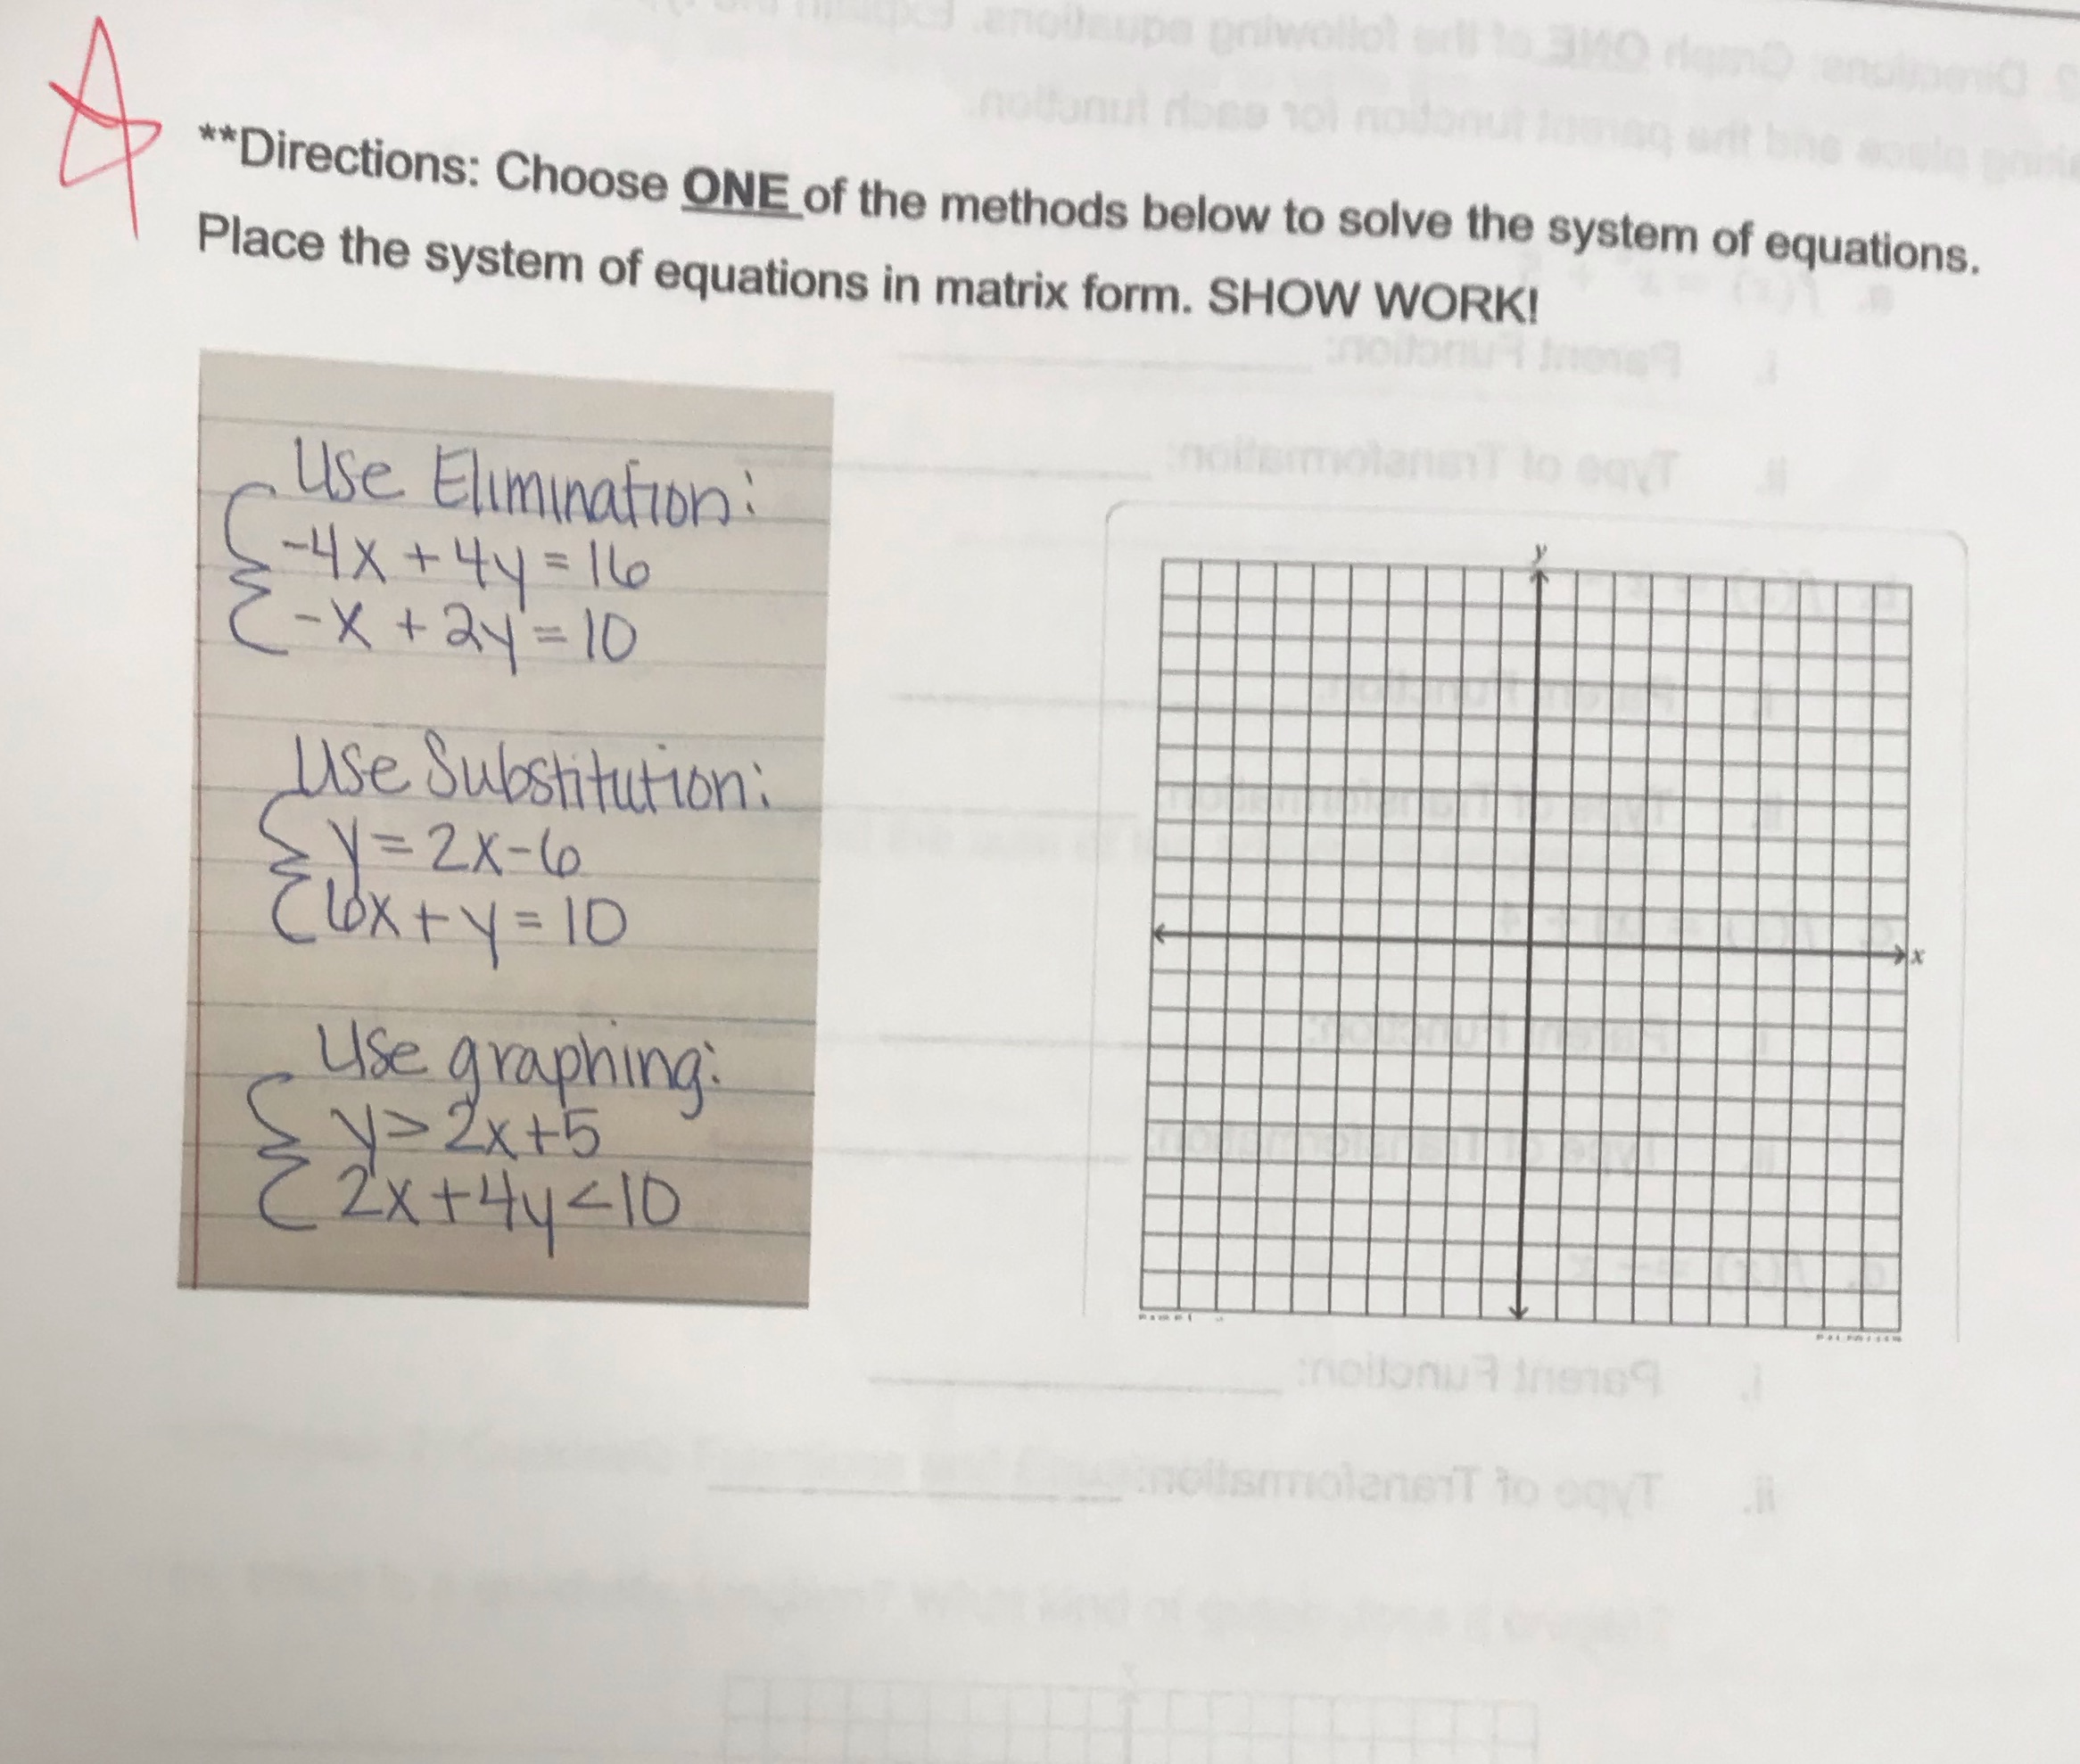 **Directions: Choose ONE of the methods below to solve the system of equations.
Place the system of equations in matrix form. SHOW WORK!
Use Elimination:
-4x + 4y = 16
-x + 2y = 10
Use Substitution:
y = 2x-6
6x + y = 10
Use graphing:
y > 2x+5
2x + 4y < 10
y
x